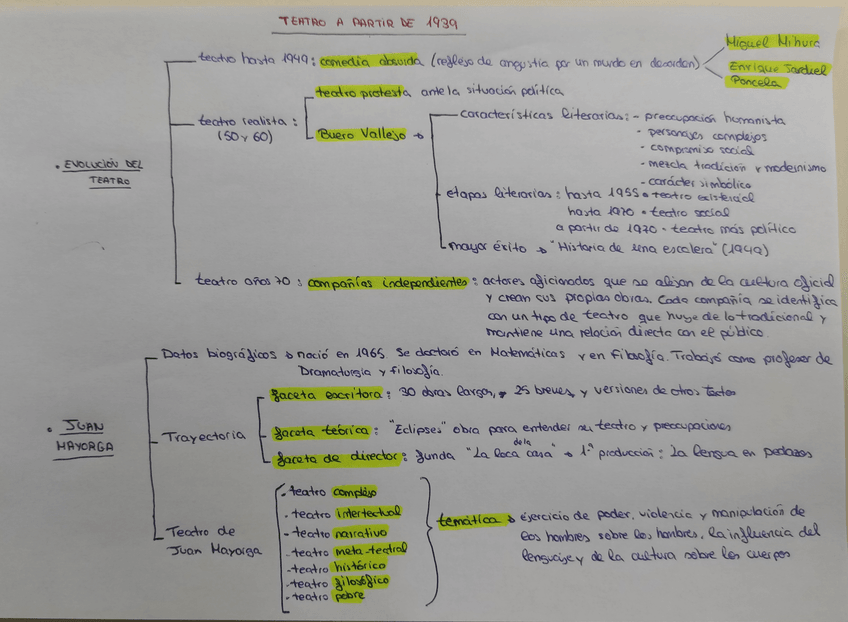 TEATRO A PARTIR DE 1939
• EVOLUCIÓN DEL
TEATRO
teatro hasta 1949: comedia absurda (reflejo de angustia por un mundo en desorden)
Miguel Mihura
Enrique Jardiel
Poncela
teatro realista:
(50 y 60)
teatro protesta ante la situación política
Buero Vallejo →
características literarias: - preocupación humanista
- personajes complejos
- compromiso social
- mezcla tradición y modernismo
- carácter simbólico
etapas literarias: hasta 1955 • teatro existencial
hasta 1970 • teatro social
a partir de 1970 • teatro más político
mayor éxito → "Historia de una escalera" (1949)
teatro años 70: compañías independientes: actores aficionados que se alejan de la cultura oficial
y crean sus propias obras. Cada compañía se identifica
con un tipo de teatro que huye de lo tradicional y
mantiene una relación directa con el público.
• JUAN
MAYORGA
Datos biográficos → nació en 1965. Se doctoró en Matemáticas y en Filosofía. Trabajó como profesor de
Dramaturgia y filosofía.
Trayectoria
faceta escritora: 30 obras largas, 25 breves, y versiones de otros textos
faceta teórica: "Eclipses" obra para entender su teatro y preocupaciones
faceta de director: funda "La loca de la casa" → 1.ª producción: La lengua en pedazos
Teatro de
Juan Mayorga
• teatro complejo
• teatro intertextual
- teatro narrativo
- teatro meta-teatral
- teatro histórico
- teatro filosófico
• teatro pobre
temática → ejercicio de poder, violencia y manipulación de
los hombres sobre los hombres, la influencia del
lenguaje y de la cultura sobre los cuerpos